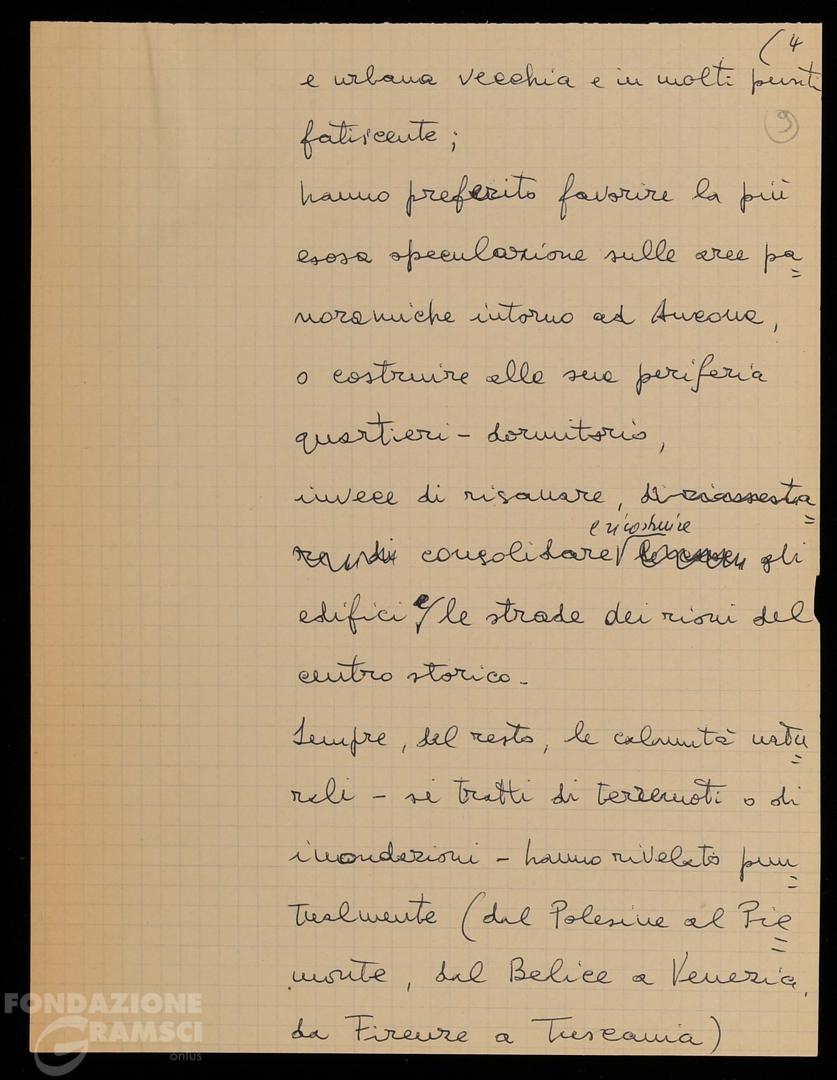 (4
e urbana vecchia e in molti punti
9
fatiscente;
hanno preferito favorire la più
esosa speculazione sulle aree pa=
noramiche intorno ad Ancona,
o costruire alla sua periferia
quartieri-dormitorio,
invece di risanare, di riassesta=
re, di consolidare e ricostruire gli
edifici e le strade dei rioni del
centro storico.
Sempre, del resto, le calamità natu=
rali - si tratti di terremoti o di
inondazioni - hanno rivelato pun=
tualmente (dal Polesine al Pie=
monte, dal Belice a Venezia,
da Firenze a Tuscania)
FONDAZIONE
GRAMSCI
onlus